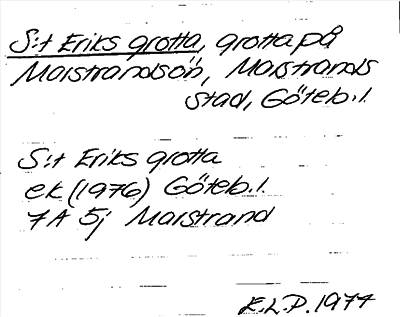 S:t Eriks grotta, grotta på
Marstrandsön, Marstrands
stad, Göteb.l.
S:t Eriks grotta
ek (1976) Göteb.l.
7A 5j Marstrand
E.L.P. 1977